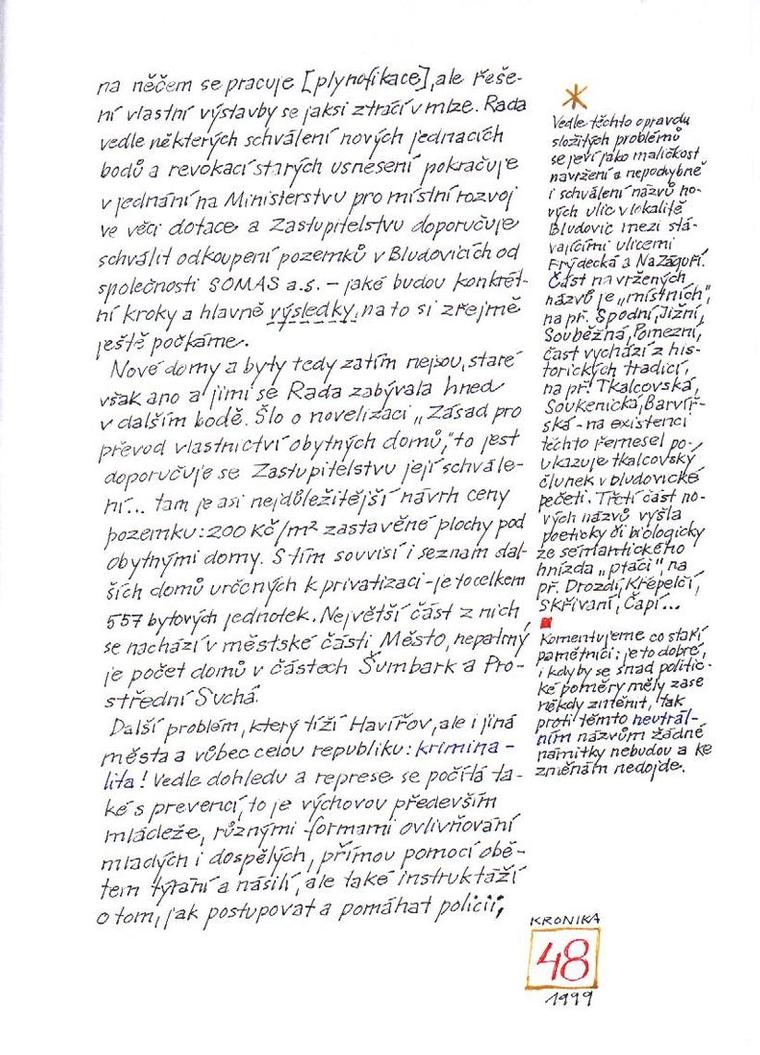 na něčem se pracuje [plynofikace], ale řeše-
ní vlastní výstavby se jaksi ztrácí v mlze. Rada
vedle některých schválení nových jednacích
bodů a revokací starých usnesení pokračuje
v jednání na Ministerstvu pro místní rozvoj
ve věci dotace a Zastupitelstvu doporučuje
schválit odkoupení pozemků v Bludovicích od
společnosti SOMAS a.s. – jaké budou konkrét-
ní kroky a hlavně výsledky, na to si zřejmě
ještě počkáme.
Nové domy a byty tedy zatím nejsou, staré
však ano a jimi se Rada zabývala hned
v dalším bodě. Šlo o novelizaci „Zásad pro
převod vlastnictví obytných domů," to jest
doporučuje se Zastupitelstvu její schvále-
ní... tam je asi nejdůležitější návrh ceny
pozemku: 200 Kč/m² zastavěné plochy pod
obytnými domy. S tím souvisí i seznam dal-
ších domů určených k privatizaci - je to celkem
557 bytových jednotek. Největší část z nich
se nachází v městské části Město, nepatrný
je počet domů v částech Šumbark a Pro-
střední Suchá.
Další problém, který tíží Havířov, ale i jiná
města a vůbec celou republiku: krimina-
lita! Vedle dohledu a represe se počítá ta-
ké s prevencí, to je výchovou především
mládeže, různými formami ovlivňování
mladých i dospělých, přímou pomocí obě-
tem týrání a násilí, ale také instruktáží
o tom, jak postupovat a pomáhat policii;
Vedle těchto opravdu
složitých problémů
se jeví jako maličkost
navržení a nepochybně
i schválení názvů no-
vých ulic v lokalitě
Bludovic mezi stá-
vajícími ulicemi
Frýdecká a Na Záguří.
Část navržených
názvů je „místních",
na př. Spodní, Jižní,
Souběžná, Pomezní,
část vychází z his-
torických tradicí,
na př. Tkalcovská,
Soukenická, Barvíř-
ská - na existenci
těchto řemesel po-
ukazuje tkalcovský
člunek v bludovické
pečeti. Třetí část no-
vých názvů vyšla
poeticky či biologicky
ze sémantického
hnízda „ptáci", na
př. Drozdí, Křepelčí,
Skřivaní, Čapí...
Komentujeme co staří
pamětníci: je to dobré,
i kdyby se snad politic-
ké poměry měly zase
někdy změnit, tak
proti těmto neutrál-
ním názvům žádné
námitky nebudou a ke
změnám nedojde.
KRONIKA
48
1999